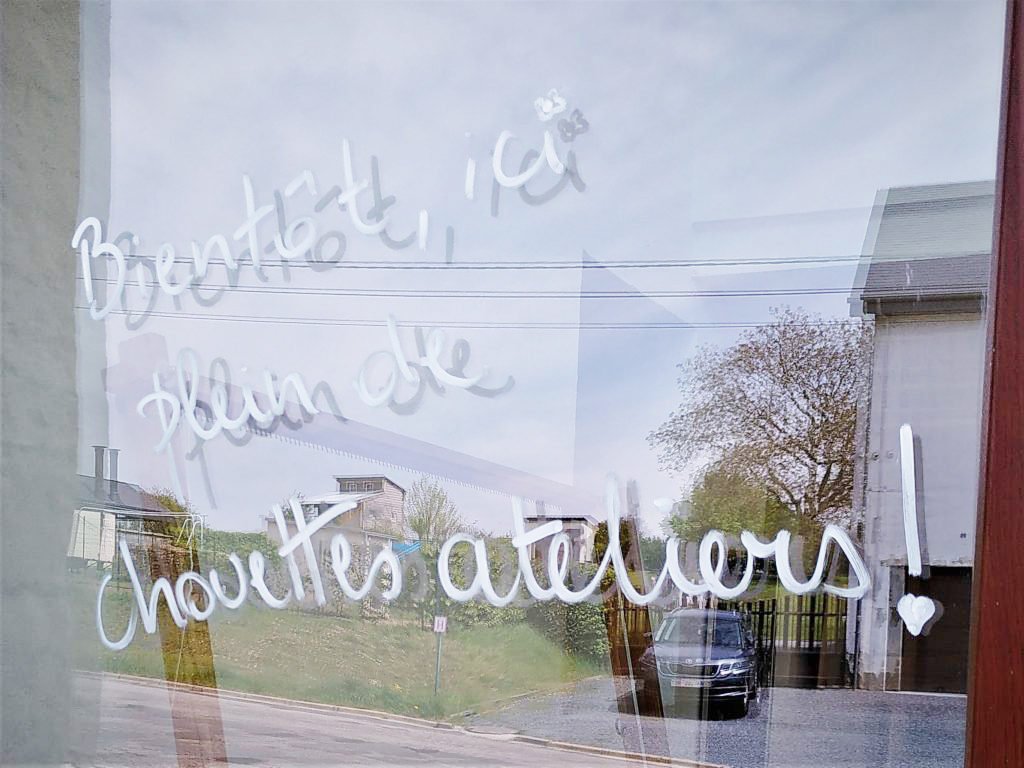 Bientôt, ici
plein de
chouettes ateliers !